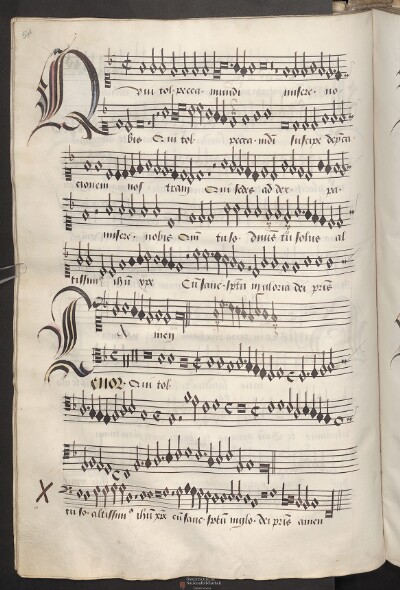 Qui tol pecca mundi misere no
bis Qui tol pecca mdi suscipe depca
cionem nos tram Qui sedes ad dex pa
misere nobis Qm tu so dnus tu solus al
tissim ihu xpe Cu sanc sptu in gloria dei pris
A men
TENOR Qui tol
tu so altissim ihu xpe cu sanc sptu in glo dei pris amen